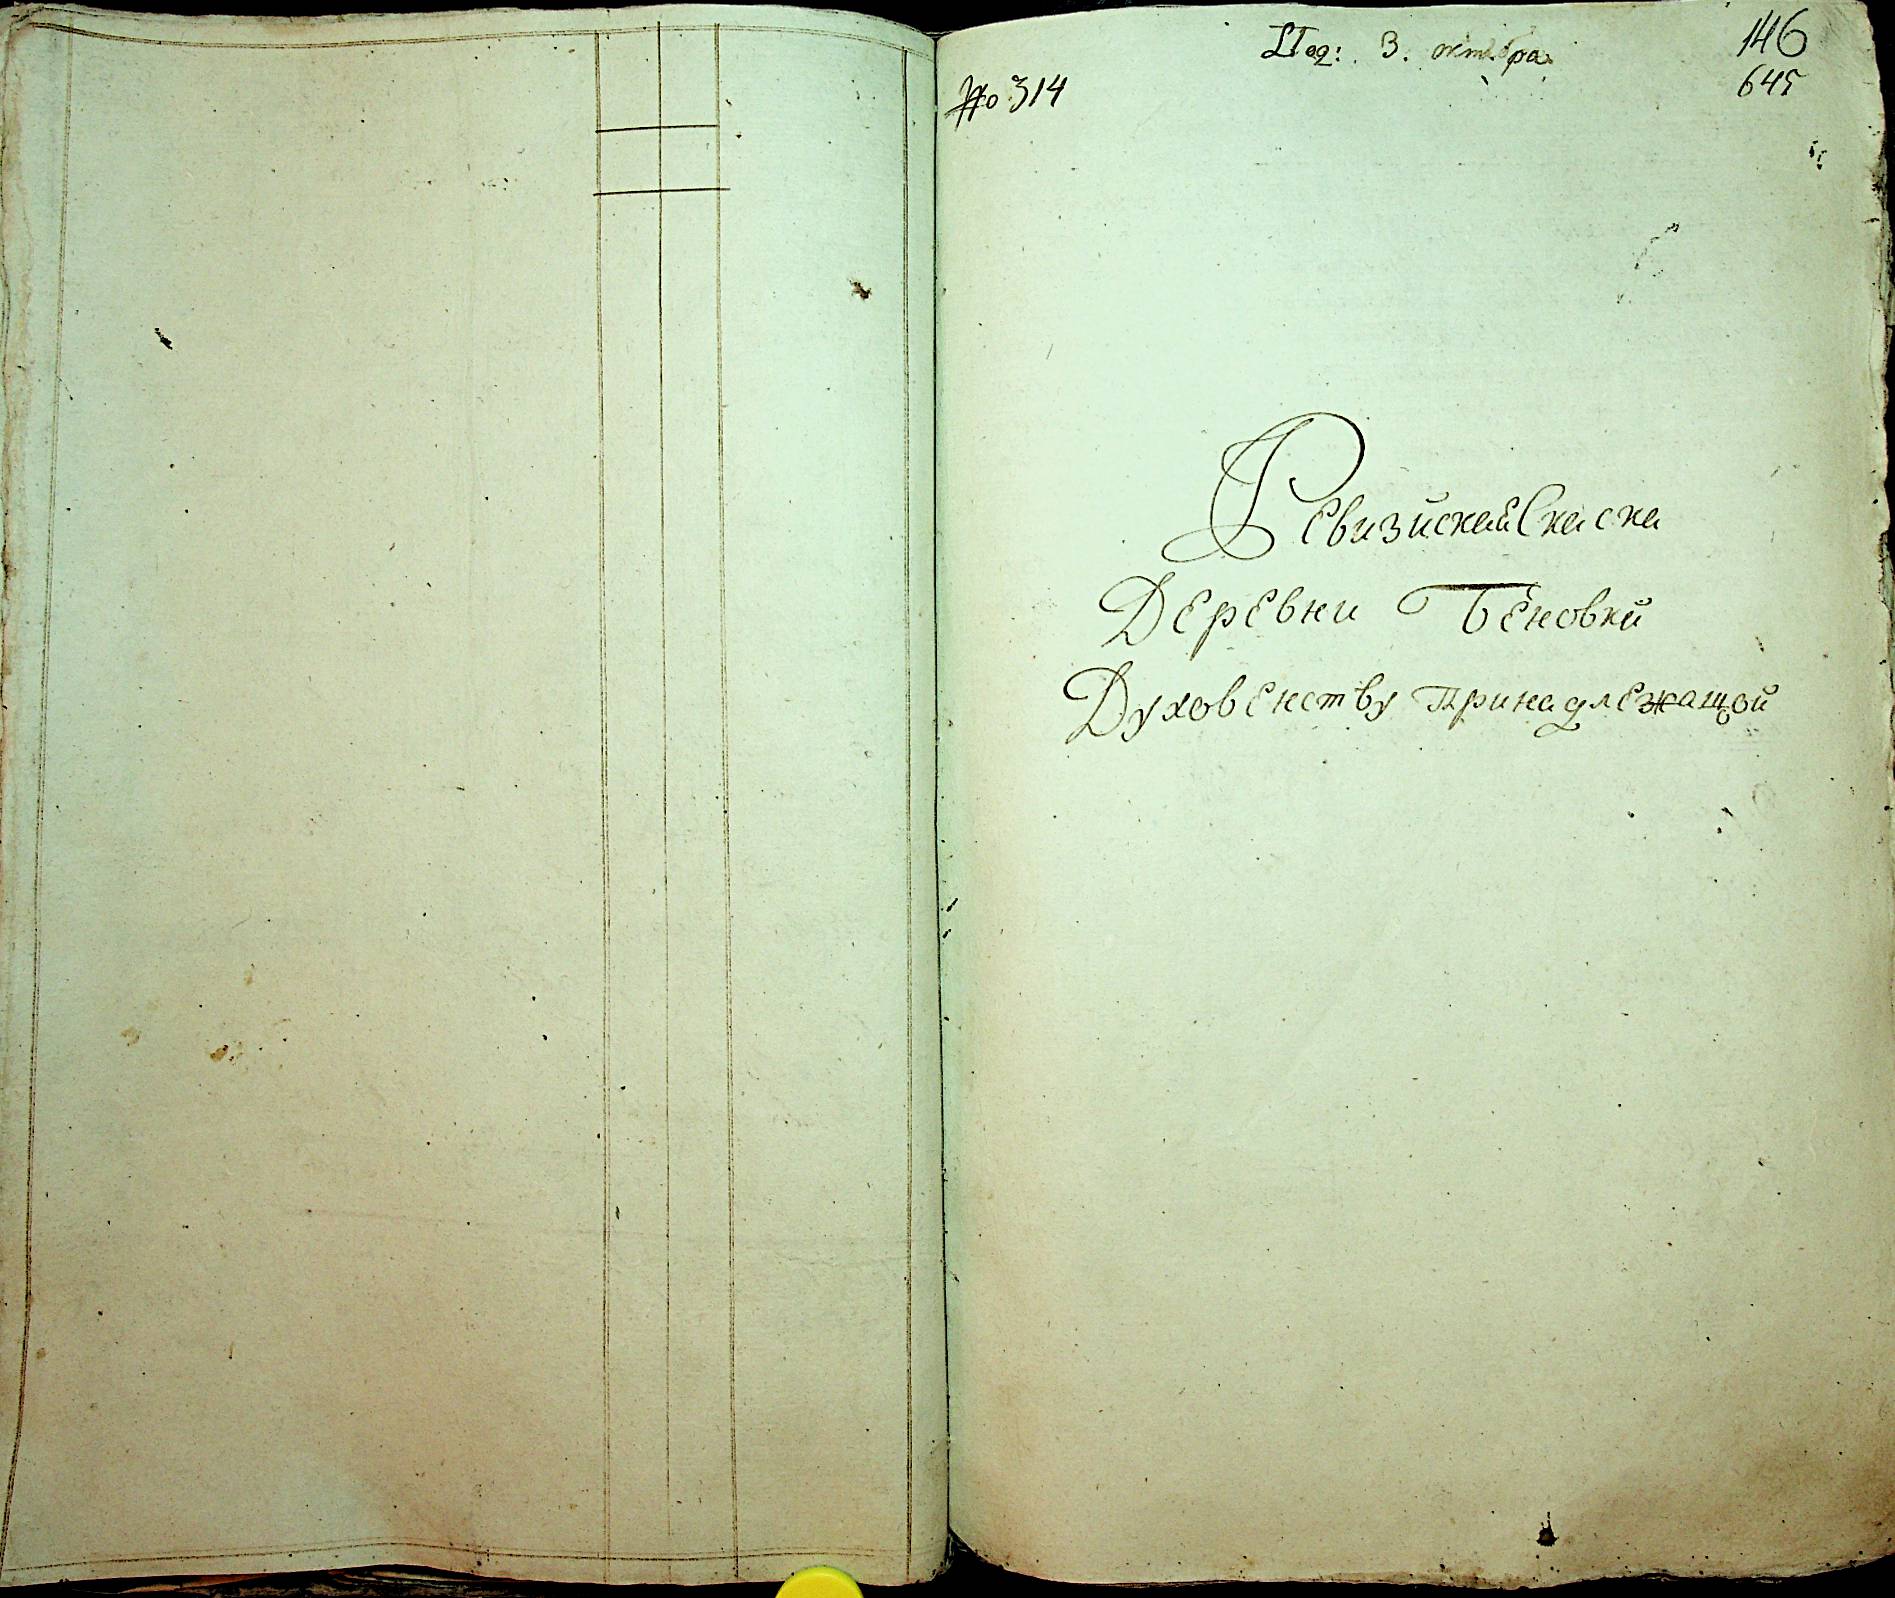 Под: 3. октября
146
645
No 314
Ревизйская Скаска
Деревни Беновки
Духовенству Принадлежащой